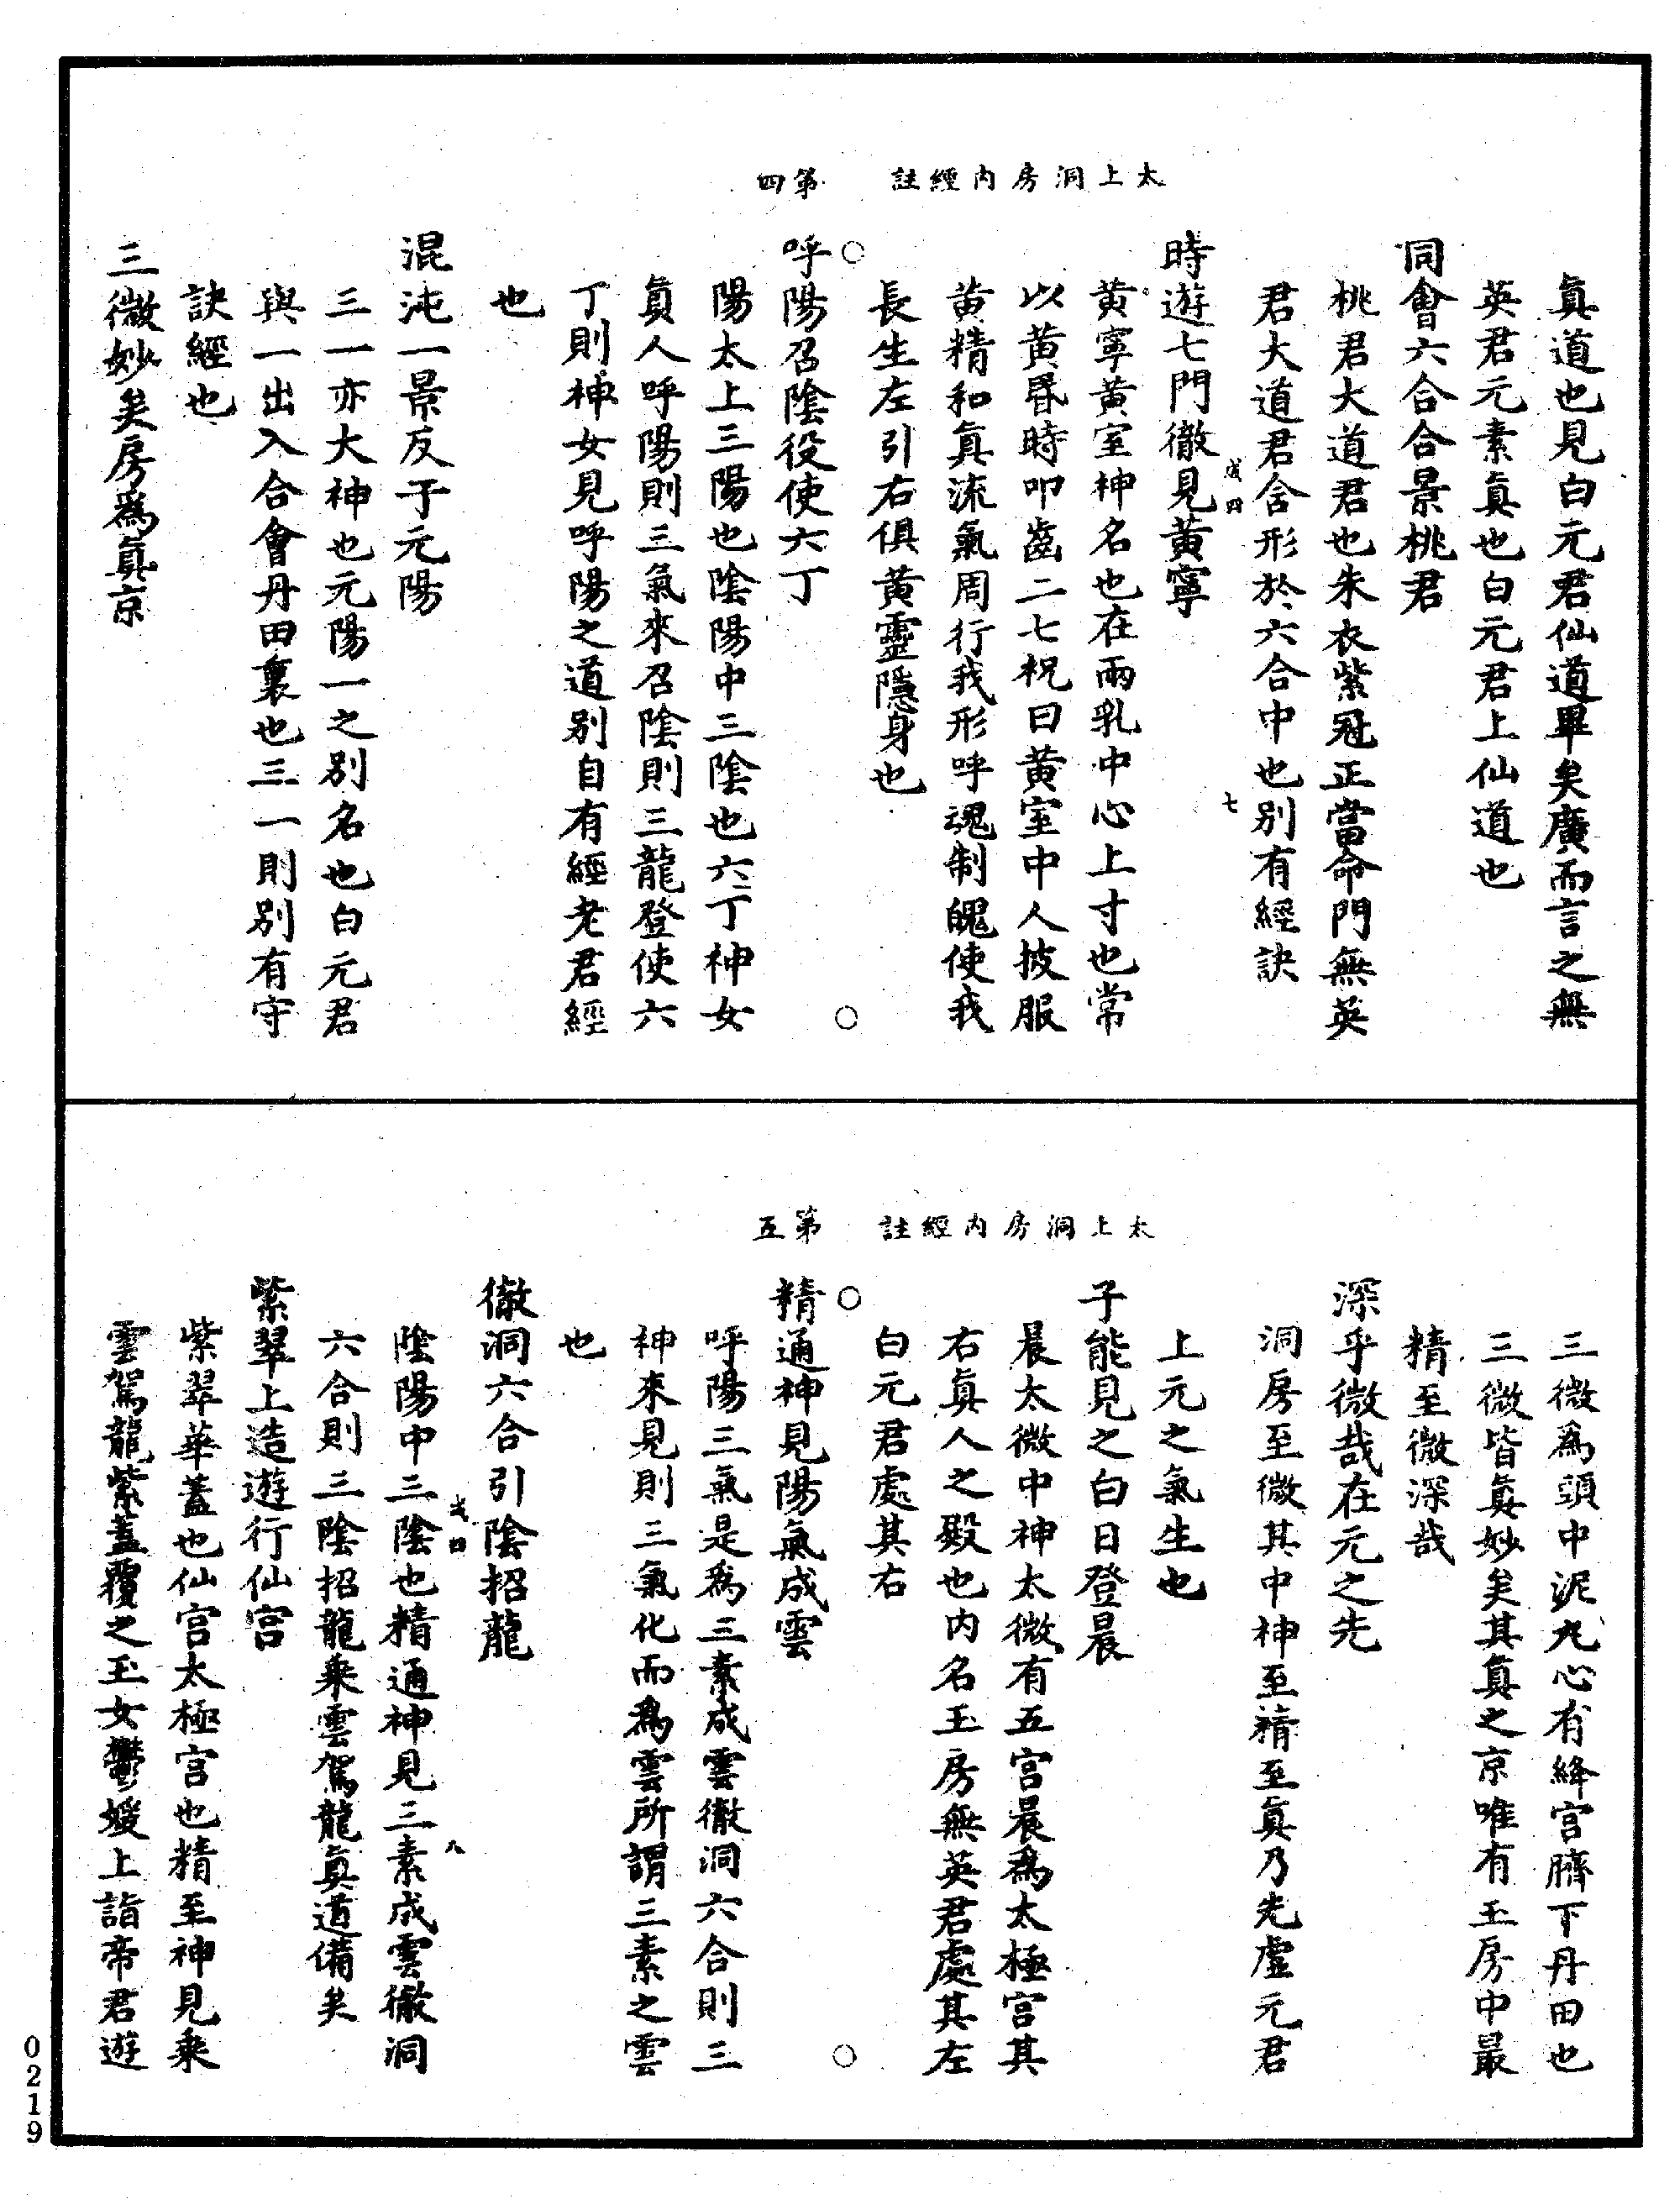 太上洞房内經註　第四
真道也見白元君仙道畢矣廣而言之無
英君元素真也白元君上仙道也
同會六合合景桃君
桃君大道君也朱衣紫冠正當命門無英
君大道君含形於六合中也別有經訣
成四　七
時遊七門徹見黄寧
黄寧黄室神名也在兩乳中心上寸也常
以黄昬時叩齒二七祝曰黄室中人披服
黄精和真流氣周行我形呼魂制魄使我
長生左引右俱黄靈隱身也
呼陽召陰役使六丁
陽太上三陽也陰陽中三陰也六丁神女
真人呼陽則三氣來召陰則三龍登使六
丁則神女見呼陽之道別自有經老君經
也
混沌一景反于元陽
三一亦大神也元陽一之別名也白元君
與一出入合會丹田裏也三一則別有守
訣經也
三微妙矣房爲真京
太上洞房内經註　第五
三微爲頭中泥丸心有絳宮臍下丹田也
三微皆真妙矣其真之京唯有玉房中最
精至微深哉
深乎微哉在元之先
洞房至微其中神至精至真乃先虛元君
上元之氣生也
子能見之白日登晨
晨太微中神太微有五宮晨爲太極宮其
右真人之殿也内名玉房無英君處其左
白元君處其右
精通神見陽氣成雲
呼陽三氣是爲三素成雲徹洞六合則三
神來見則三氣化而爲雲所謂三素之雲
也
徹洞六合引陰招龍
成四　八
陰陽中三陰也精通神見三素成雲徹洞
六合則三陰招龍乘雲駕龍真道備矣
紫翠上造遊行仙宮
紫翠華蓋也仙宮太極宮也精至神見乘
雲駕龍紫蓋覆之玉女鬱嫒上詣帝君遊
0219